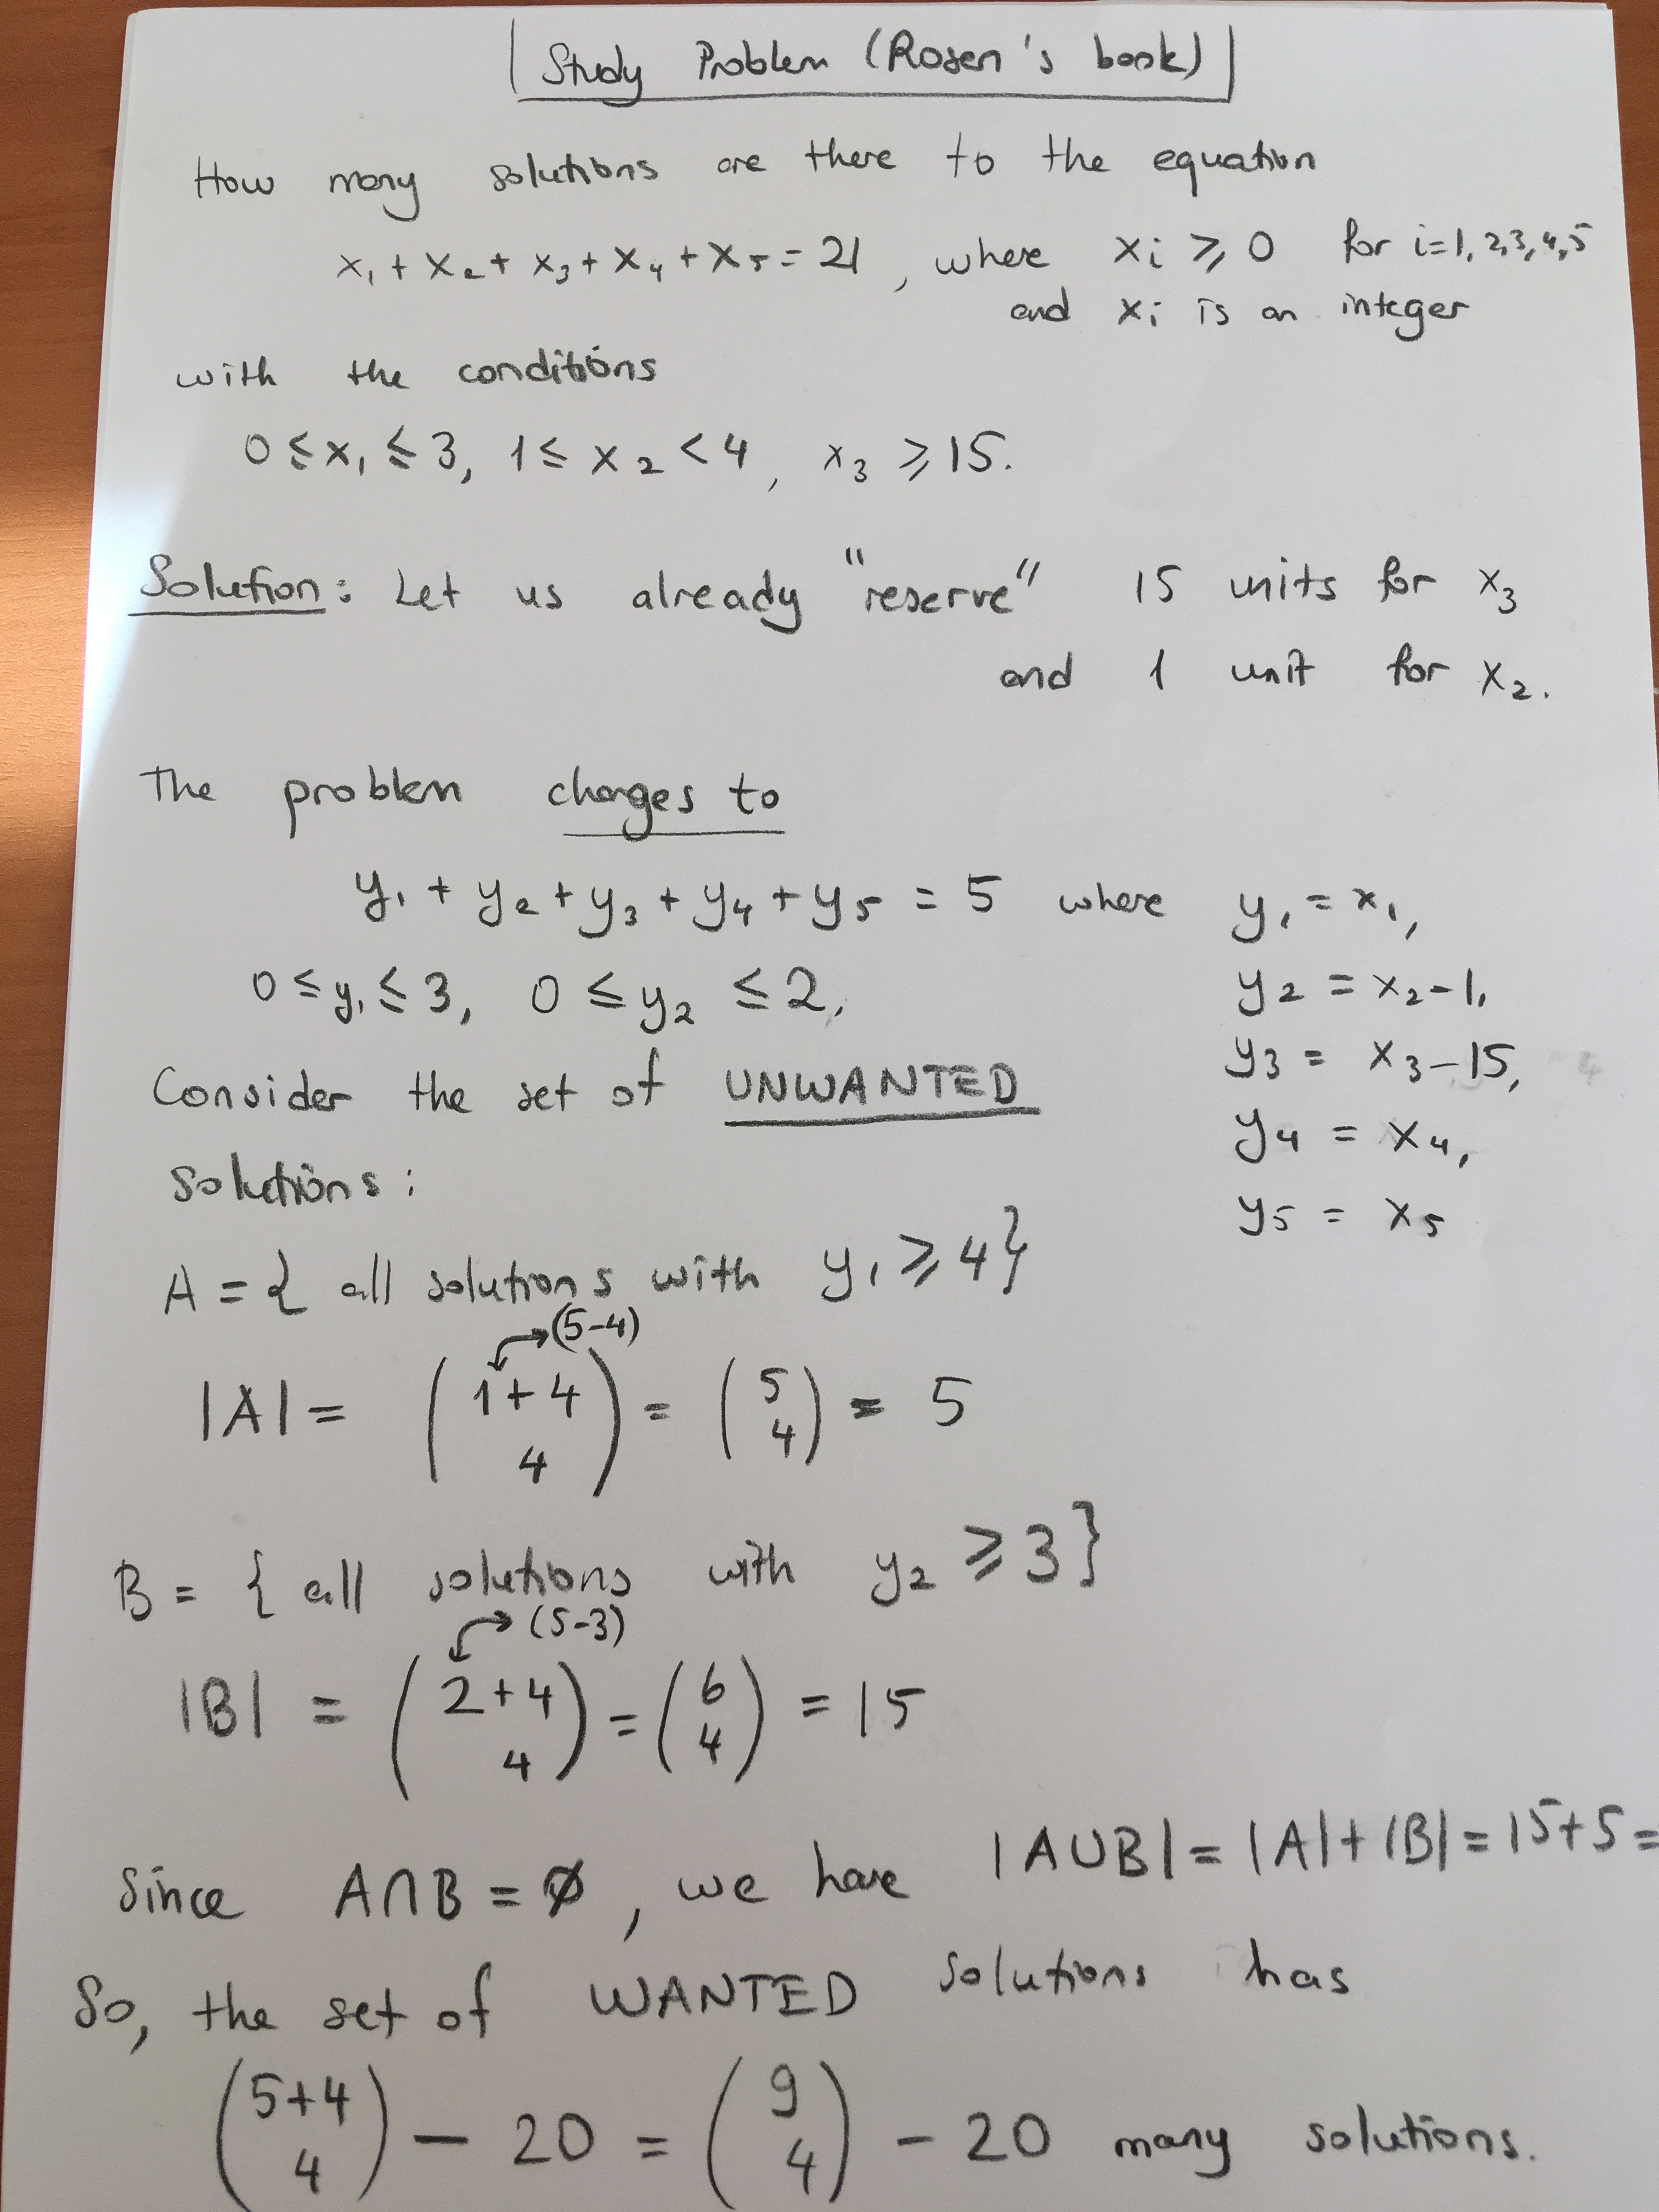 Study Problem (Rosen's book)
How many solutions are there to the equation
x₁ + x₂ + x₃ + x₄ + x₅ = 21, where xᵢ ⩾ 0 for i=1,2,3,4,5
and xᵢ is an integer
with the conditions
0 ≤ x₁ ≤ 3, 1 ≤ x₂ < 4, x₃ ⩾ 15.
Solution: Let us already "reserve" 15 units for x₃
and 1 unit for x₂.
The problem changes to
y₁ + y₂ + y₃ + y₄ + y₅ = 5 where y₁ = x₁,
0 ≤ y₁ ≤ 3, 0 ≤ y₂ ≤ 2, y₂ = x₂-1,
y₃ = x₃-15,
Consider the set of UNWANTED
y₄ = x₄,
solutions:
y₅ = x₅
A = { all solutions with y₁ ⩾ 4}
(5-4)
|A| = (1+4 4) = (5 4) = 5
B = { all solutions with y₂ ⩾ 3}
(5-3)
|B| = (2+4 4) = (6 4) = 15
Since A∩B = ∅, we have |A∪B| = |A|+|B| = 15+5=
So, the set of WANTED solutions has
(5+4 4) - 20 = (9 4) - 20 many solutions.